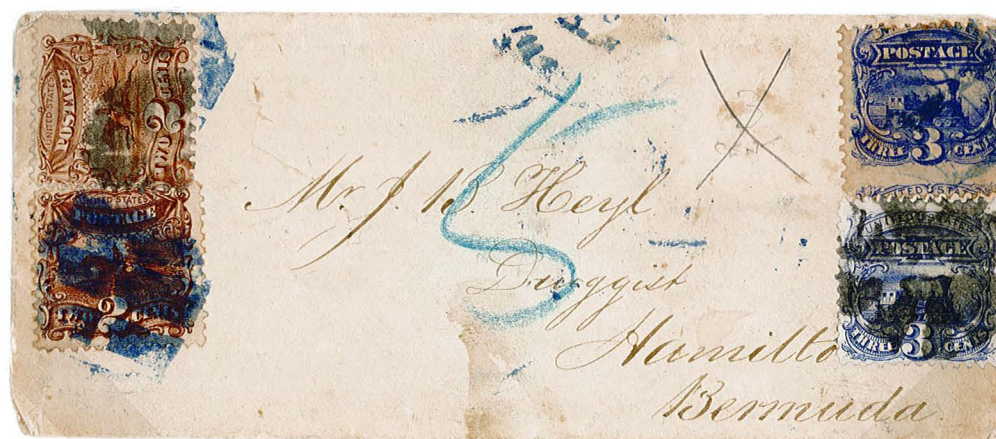 UNITED STATES
POSTAGE
TWO CENTS
2
UNITED STATES
POSTAGE
TWO 2 CENTS
POSTAGE
THREE 3 CENTS
UNITED STATES
POSTAGE
THREE 3 CENTS
5
Mr. J. B. Heyl
Druggist
Hamilto
Bermuda